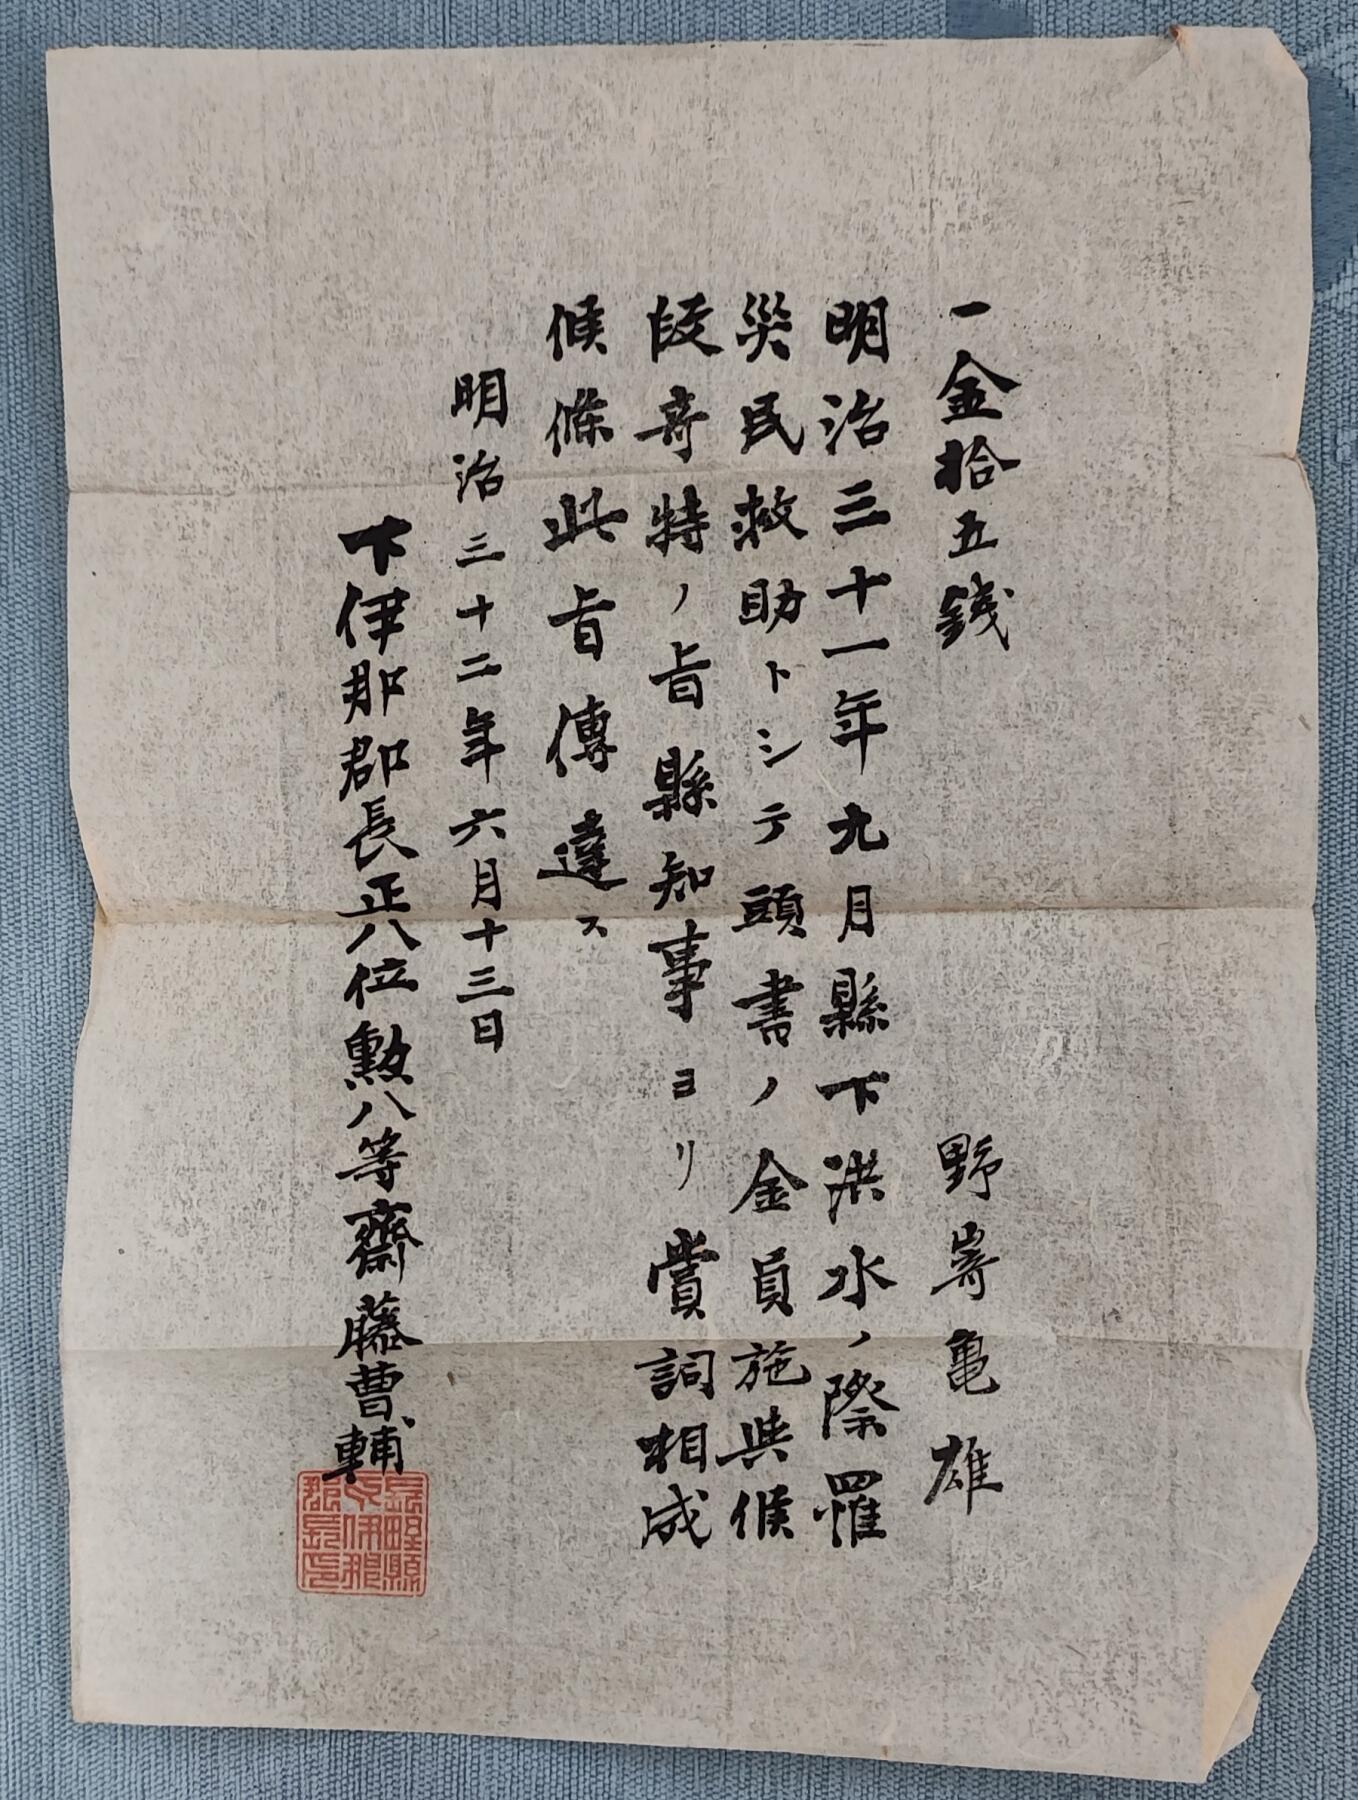 一金拾五錢　野嵜亀雄
明治三十一年九月縣下洪水ノ際罹
災民救助トシテ頭書ノ金員施與候
段奇特ノ旨縣知事ヨリ賞詞相成
候條此旨傳達ス
明治三十二年六月十三日
下伊那郡長正八位勲八等齋藤曹輔
長野縣
下伊那
郡長印